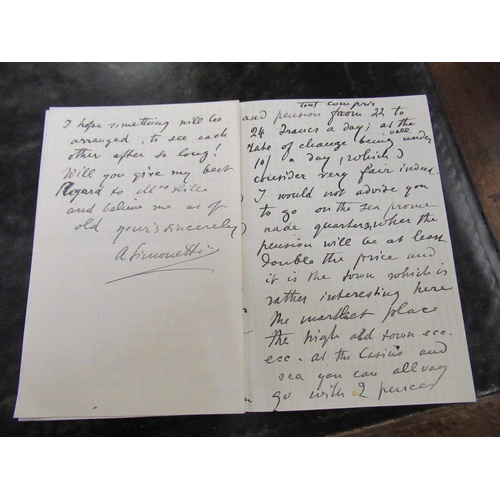 I hope something will be
arranged, to see each
other after so long!
Will you give my best
Regard to Mrs Hille
and believe me as of
old your's sincerely
A Simonetti
tout compris
and pension from 22 to
24 francs a day; at the
rate of change being well under
10/ a day, which I
consider very fair indeed.
I would not advise you
to go on the sea prome
nade quarters, wher the
pension will be at least
double the price and
it is the town which is
rather interesting here
the market place
the high old town ecc.
ecc. at the Casino and
sea you can allway
go with 2 pences